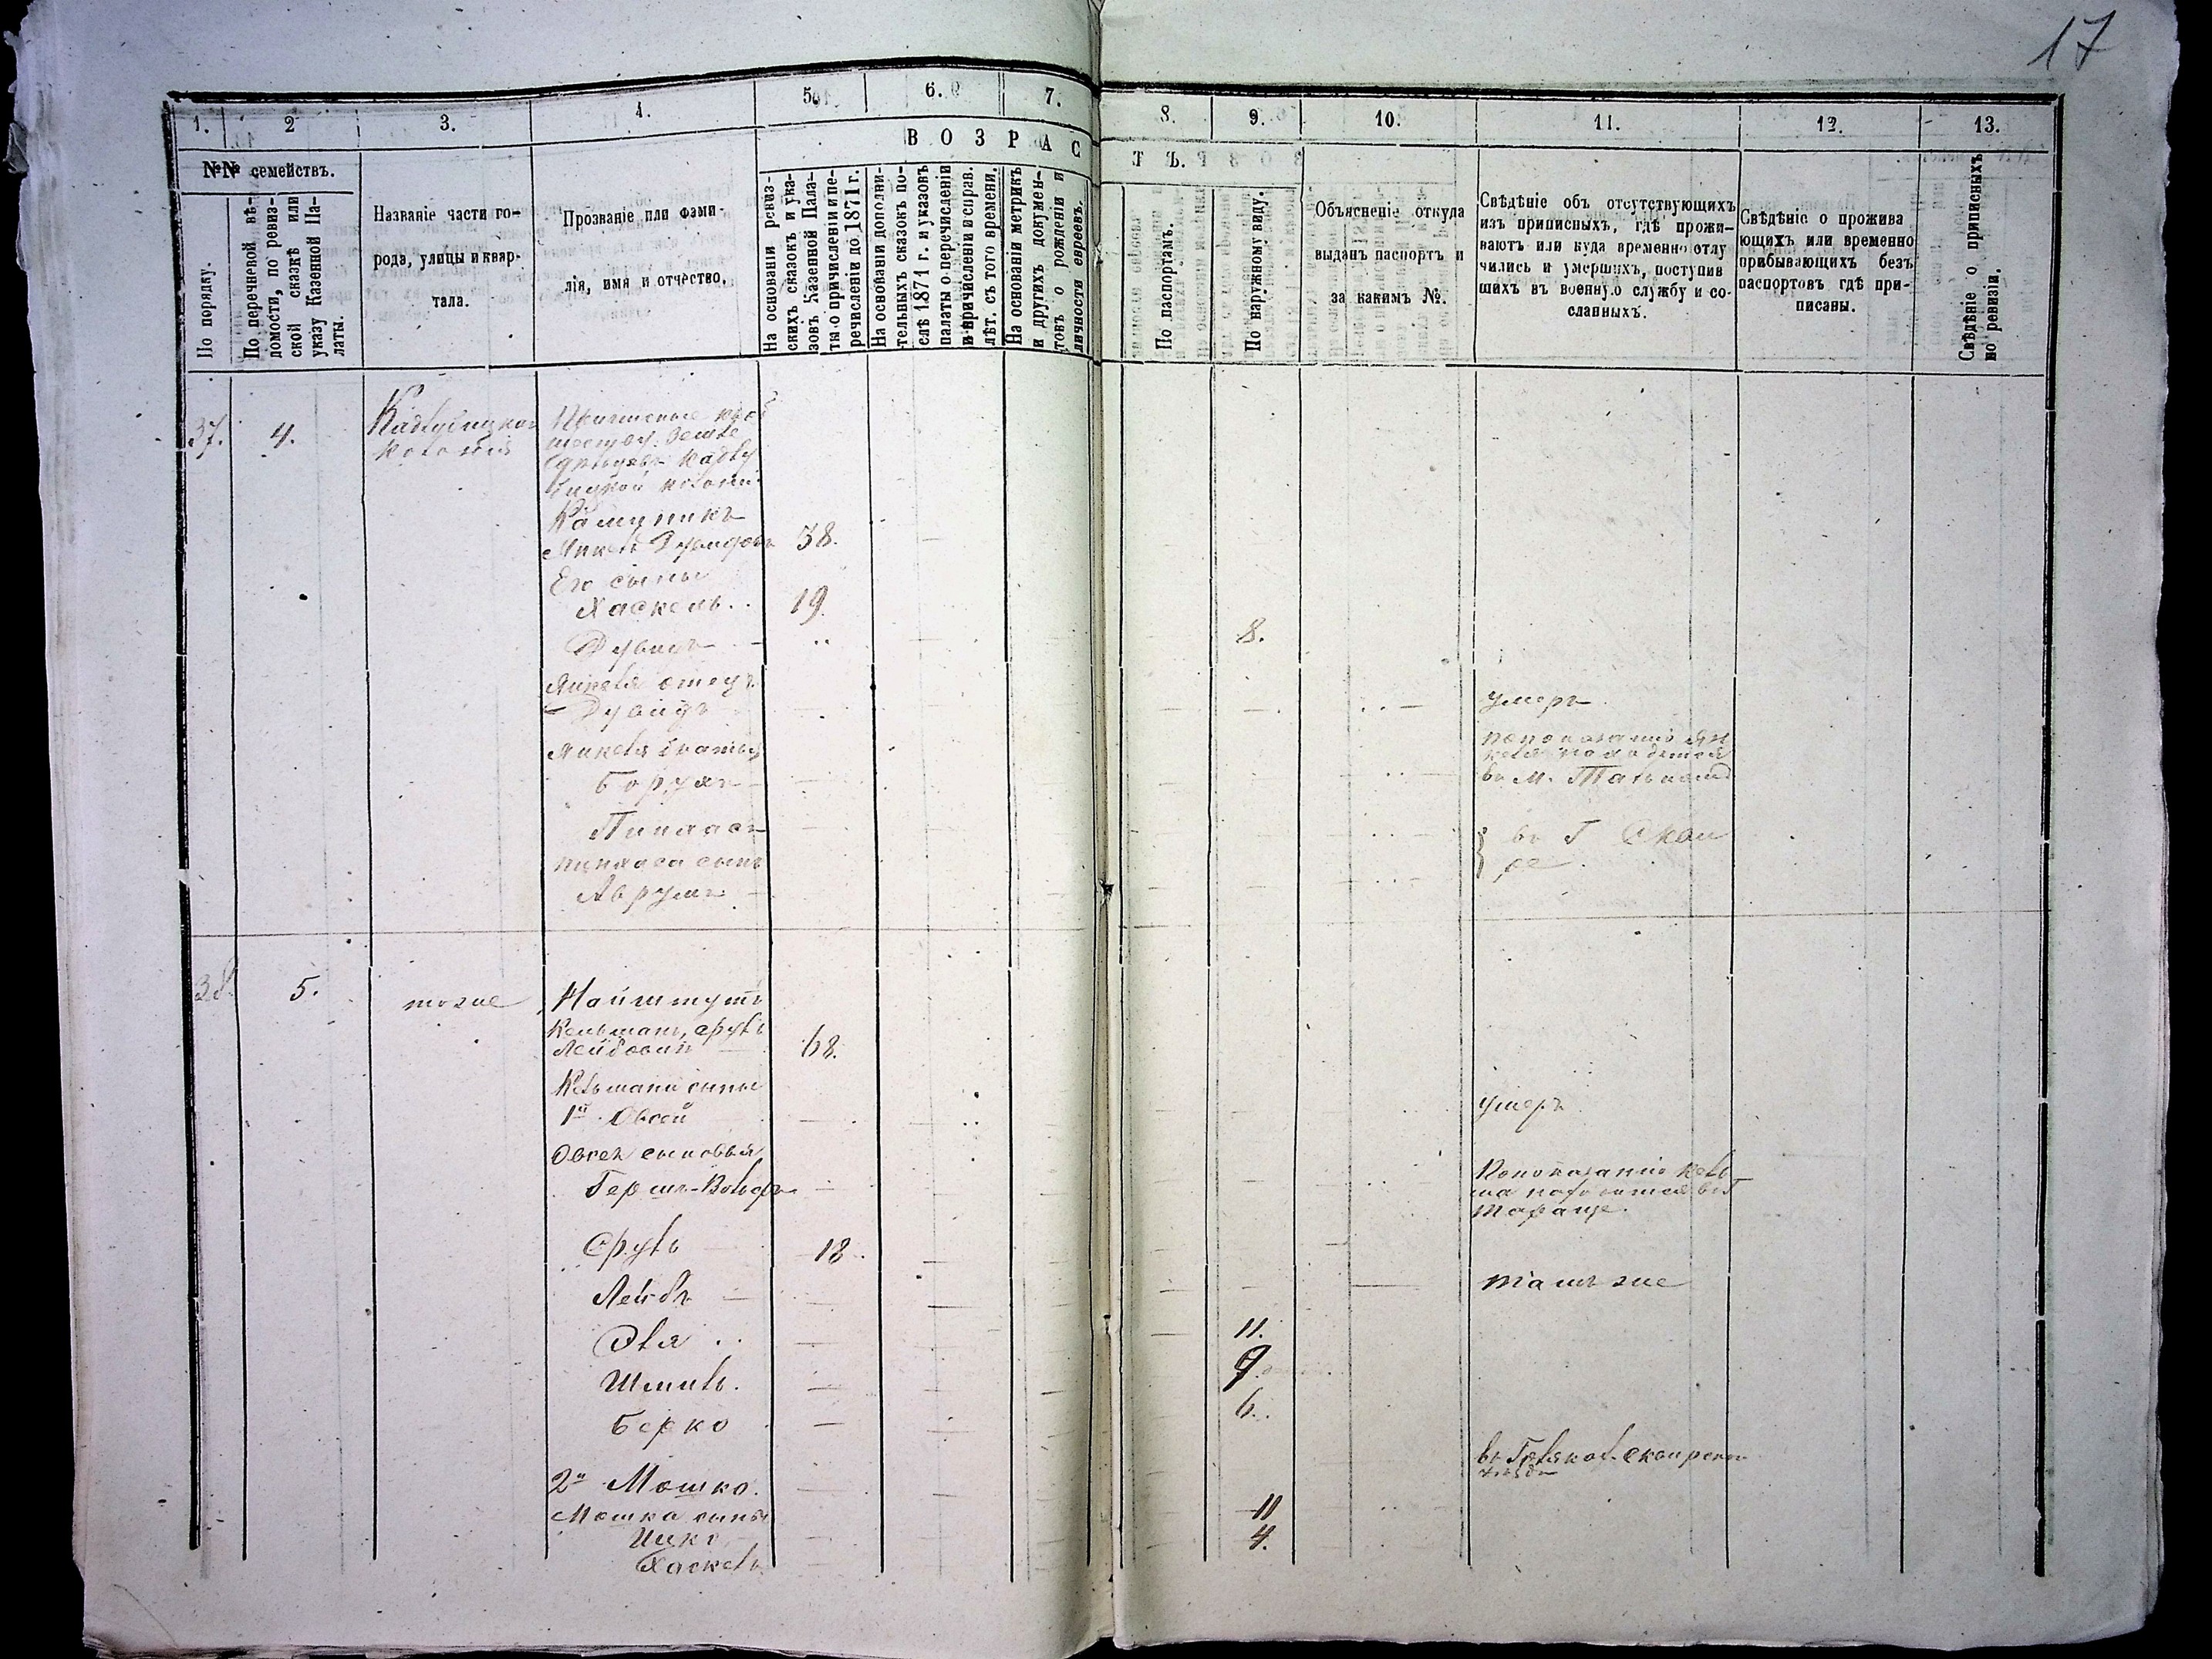 17
1. 2 3. 4. 5. 6. 7. 8. 9. 10. 11. 12. 13.
ВОЗРАСТЪ.
№№ семействъ.
По порядку.
По перечневой вѣ-
домости, по ревиз-
ской сказкѣ или
указу Казенной Па-
латы.
Названіе части го-
рода, улицы и квар-
тала.
Прозваніе или фами-
лія, имя и отчество.
На основаніи ревиз-
скихъ сказокъ и ука-
зовъ Казенной Пала-
ты о причисленіи и пе-
речисленіи до 1871 г.
На основаніи дополни-
тельныхъ сказокъ по-
слѣ 1871 г. и указовъ
палаты о перечисленіи
и причисленіи и справ.
лѣт. съ того времени.
На основаніи метрикъ
и другихъ докумен-
товъ о рожденіи и
личности евреевъ.
По паспортамъ.
По наружному виду.
Объясненіе откуда
выданъ паспортъ и
за какимъ №.
Свѣдѣніе объ отсутствующихъ
изъ приписныхъ, гдѣ прожи-
ваютъ или куда временно отлу
чились и умершихъ, поступив
шихъ въ военную службу и со-
сланныхъ.
Свѣдѣніе о прожива
ющихъ или временно
прибывающихъ безъ
паспортовъ гдѣ при-
писаны.
Свѣдѣніе о приписныхъ
по ревизіи.
37. 4. Кадлубицкая
колонія
колоніи
Янкель Дувидовъ 38.
Его сыны
Хаскель.. 19.
Дувидъ 8.
Янкеля отецъ
Дувидъ умеръ
Янкеля братья
Борухъ
по показанію Ян
келя находится
въ м.
Пинхасъ въ Г Сквы
ре.
Пинхаса сынъ
Аврумъ
38. 5. тоже Найштутъ
Кельманъ, Сруль
Лейбовичъ 68.
Кельмана сыны
1й Овсей умеръ
Овсея сыновья
Гершъ-Вольфъ
По показанію Кель
ма находится въ Г
Тараще.
Сруль 18
Лейбъ тамъ же
Эля 11.
Шмиль. 9.
Берко 6.
2й Мошко.
Мошка сыны
Ицко 11
Хаскель 4.